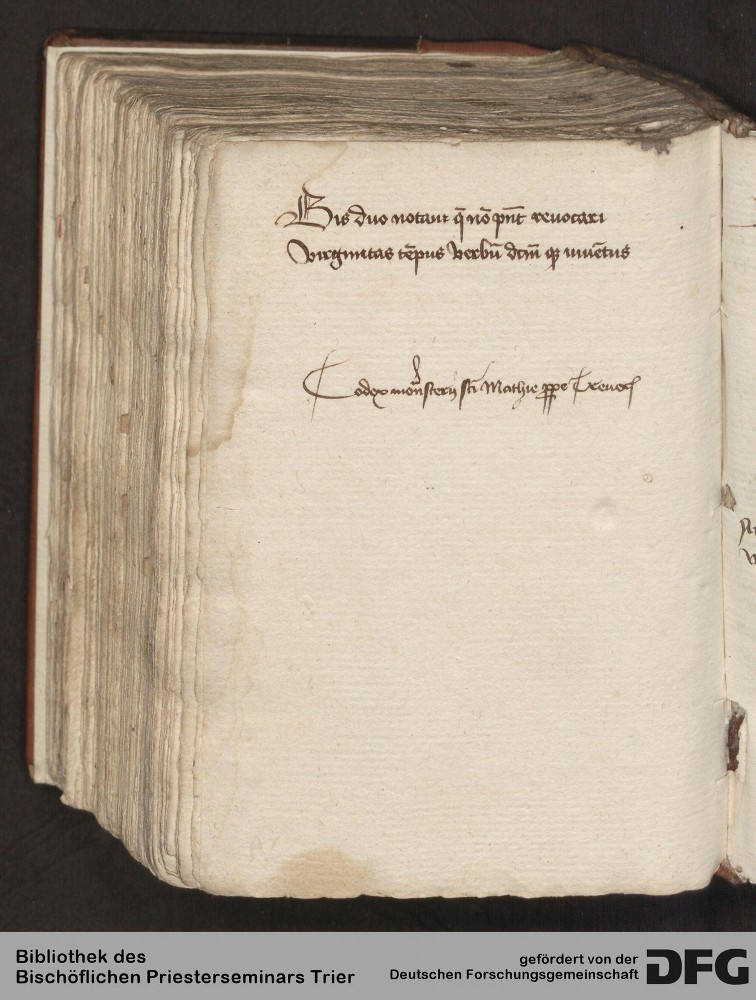 Bis duo notant̄ q̄ nō pn̄t reuocari
Virginitas tēpus verbū dcm̄ qꝫ iuuētus
Codex monsterij sti Mathie ꝓpe
Bibliothek des
Bischöflichen Priesterseminars Trier
gefördert von der
Deutschen Forschungsgemeinschaft
DFG